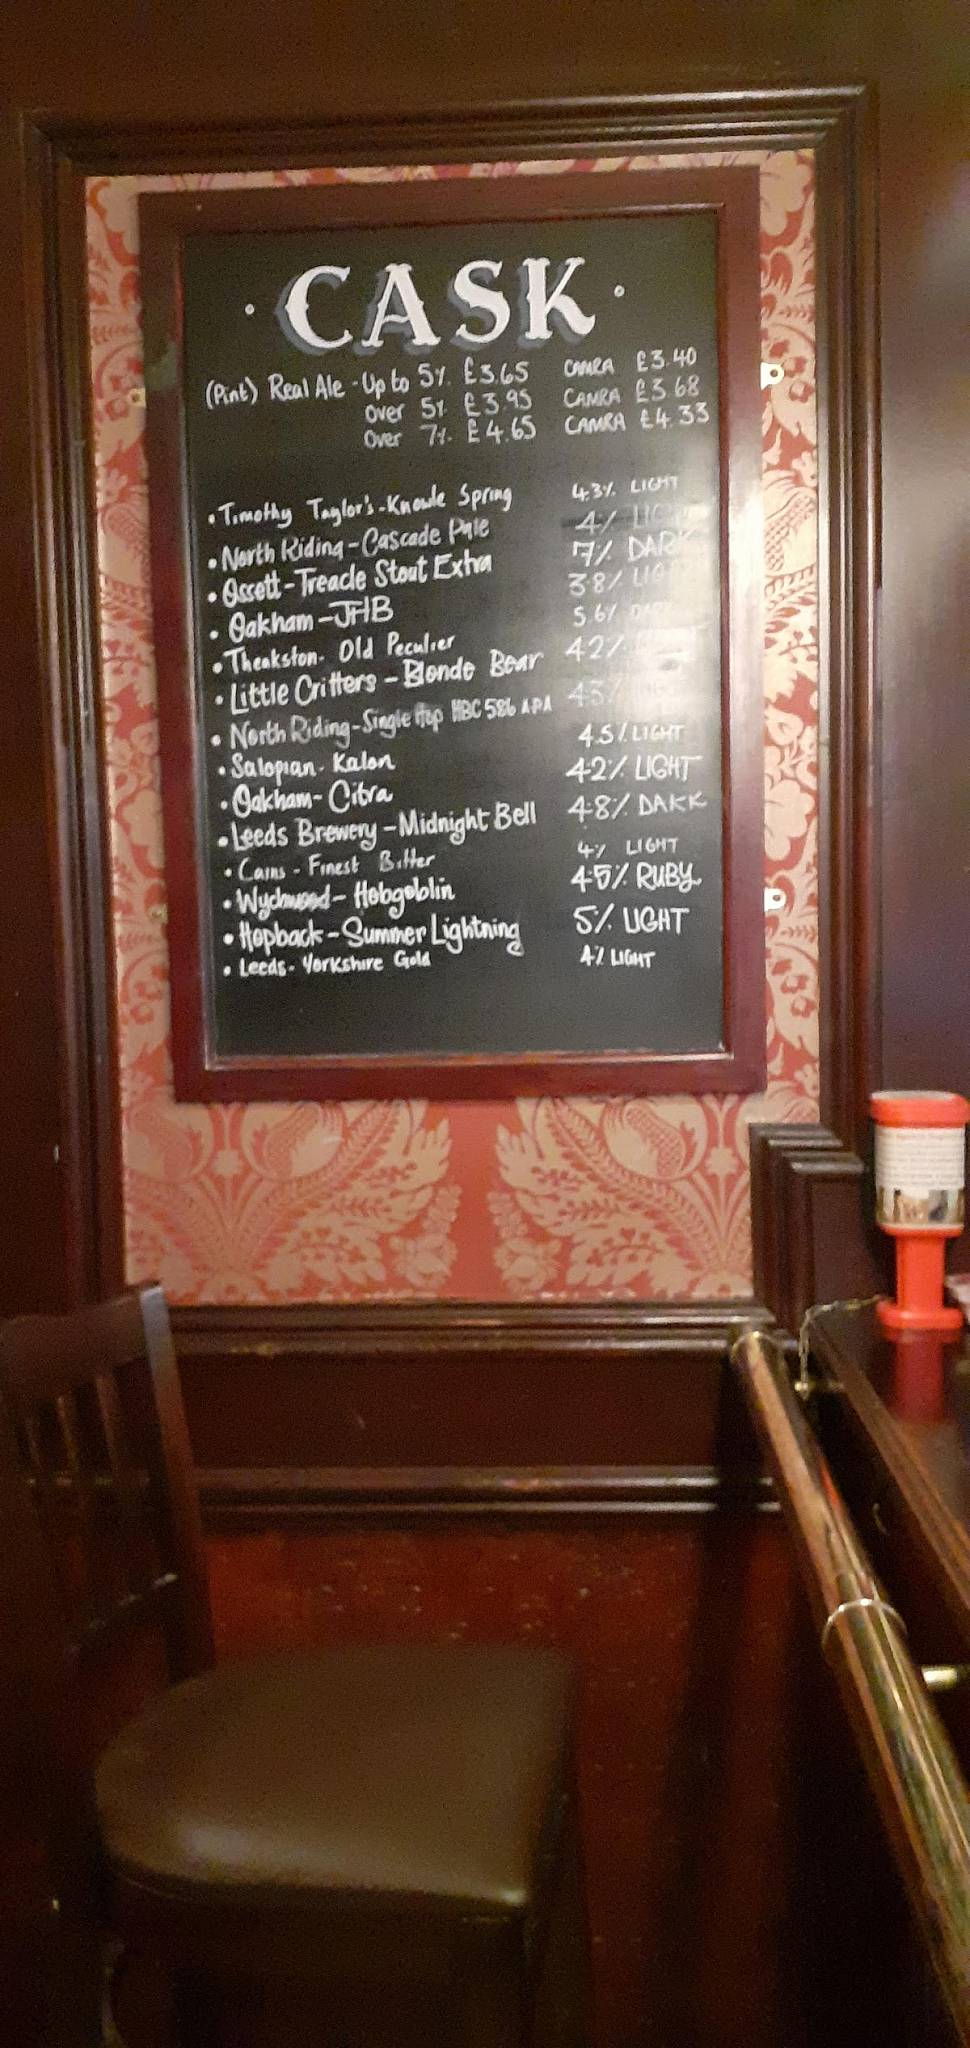 · CASK ·
(Pint) Real Ale - Up to 5% £3.65 CAMRA £3.40
Over 5% £3.95 CAMRA £3.68
Over 7% £4.65 CAMRA £4.33
• Timothy Taylor's - Knowle Spring 4.3% LIGHT
• North Riding - Cascade Pale 4% LIGHT
• Ossett - Treacle Stout Extra 7% DARK
• Oakham - JHB 3.8% LIGHT
• Theakston - Old Peculier 5.6% DARK
• Little Critters - Blonde Bear 4.2%
• North Riding - Single Hop HBC 586 APA 4.3%
• Salopian - Kalon 4.5% LIGHT
• Oakham - Citra 4.2% LIGHT
• Leeds Brewery - Midnight Bell 4.8% DARK
• Cains - Finest Bitter 4% LIGHT
• Wychwood - Hobgoblin 4.5% RUBY
• Hopback - Summer Lightning 5% LIGHT
• Leeds - Yorkshire Gold 4% LIGHT